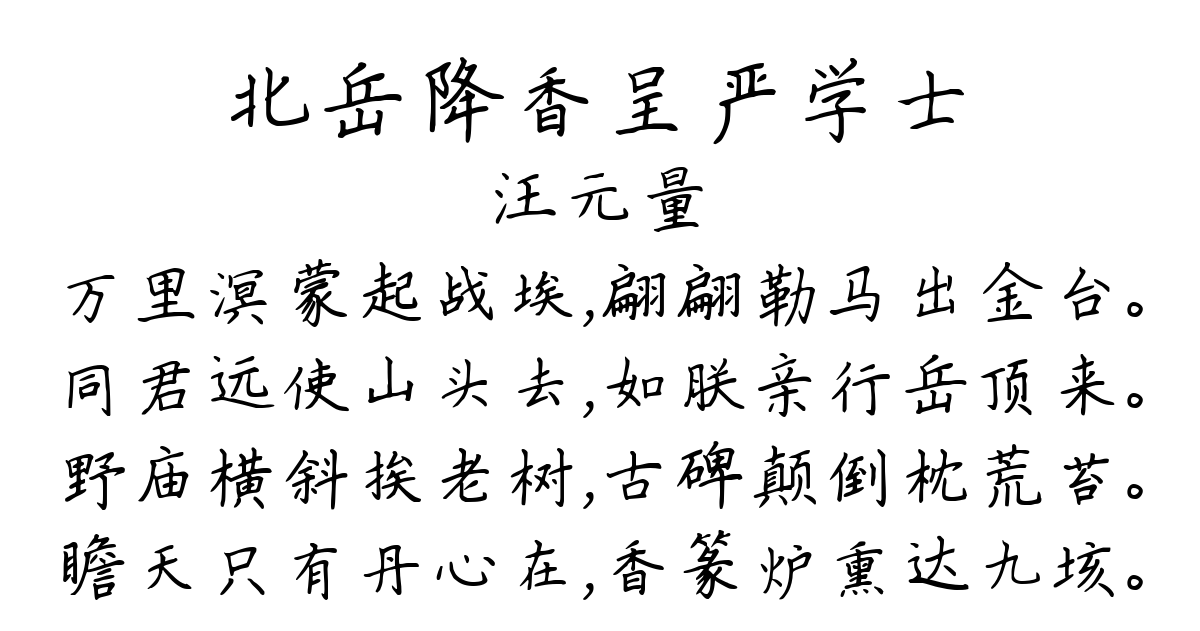 北岳降香呈严学士
汪元量
万里溟蒙起战埃,翩翩勒马出金台。
同君远使山头去,如朕亲行岳顶来。
野庙横斜挨老树,古碑颠倒枕荒苔。
瞻天只有丹心在,香篆炉熏达九垓。